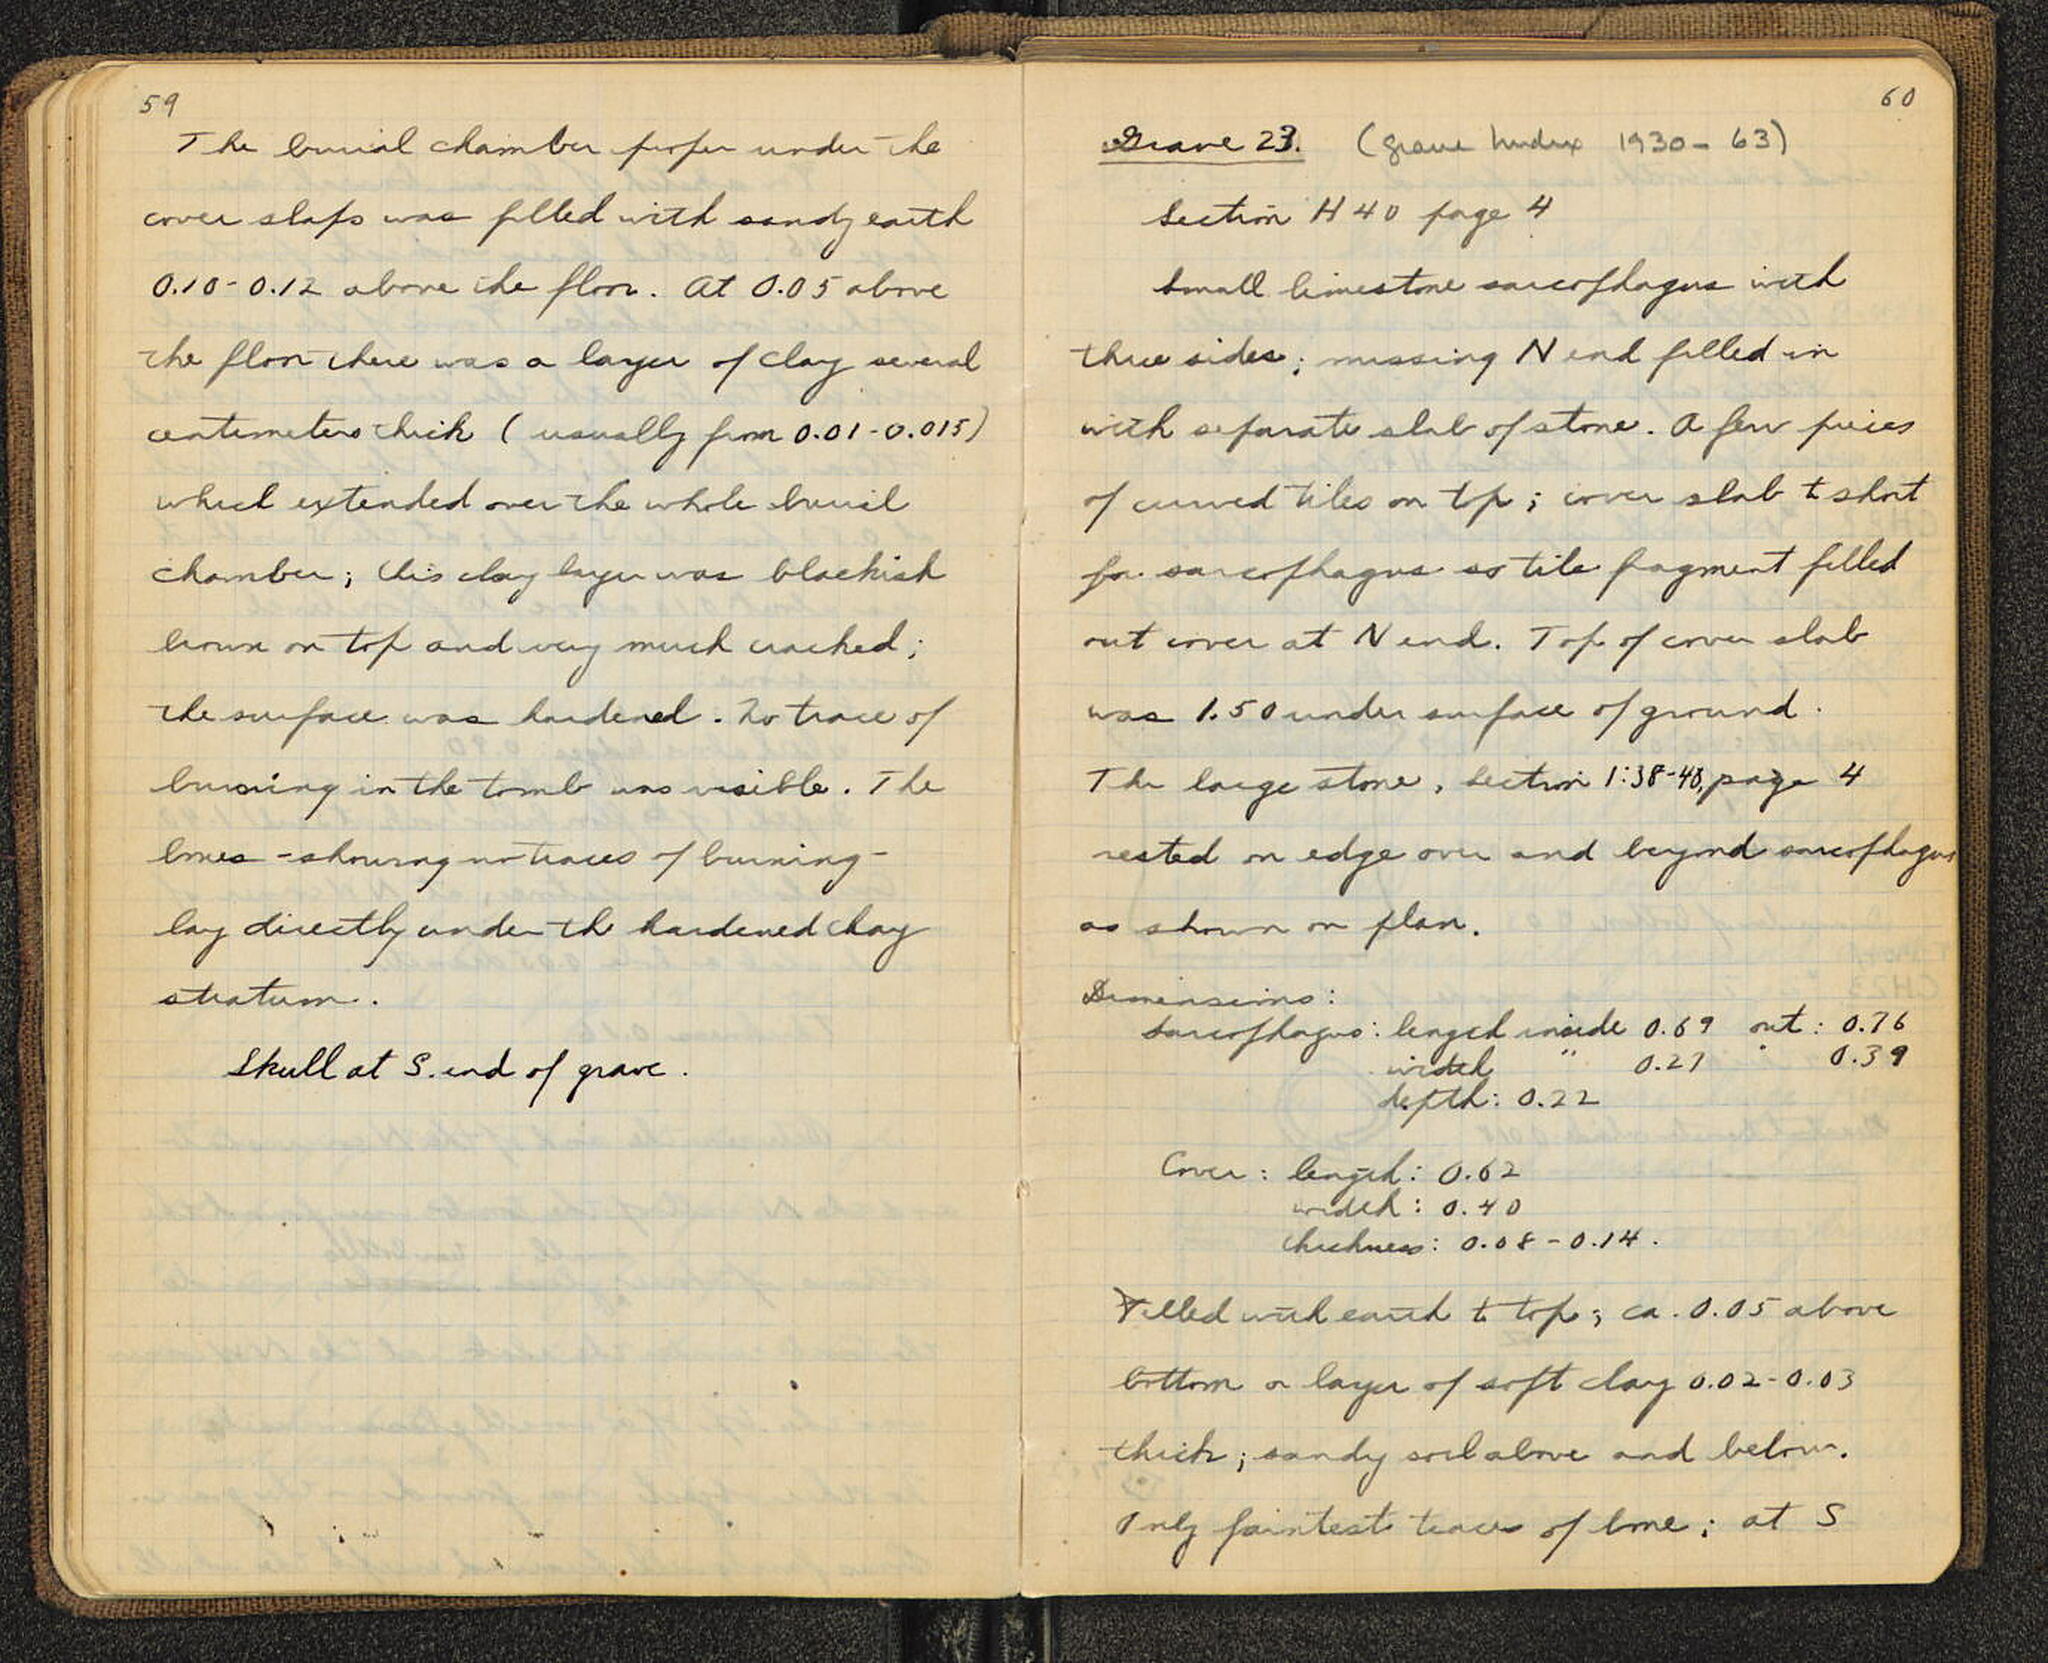 59
The burial chamber proper under the
cover slabs was filled with sandy earth
0.10-0.12 above the floor. At 0.05 above
the floor there was a layer of clay several
centimeters thick (usually from 0.01-0.015)
which extended over the whole burial
chamber; this clay layer was blackish
brown on top and very much cracked;
the surface was hardened. No trace of
burning in the tomb was visible. The
bones - showing no traces of burning -
lay directly under the hardened clay
stratum.
Skull at S. end of grave.
60
Grave 23. (grave Index 1930-63)
Section H 40 page 4
Small limestone sarcophagus with
three sides; missing N end filled in
with separate slab of stone. A few pieces
of curved tiles on top; cover slab to short
for sarcophagus so tile fragment filled
out cover at N end. Top of cover slab
was 1.50 under surface of ground.
The large stone, Section 1:38-40, page 4
rested on edge over and beyond sarcophagus
as shown on plan.
Dimensions:
Sarcophagus: length inside 0.69 out: 0.76
width " 0.27 " 0.39
depth: 0.22
Cover: length: 0.62
width: 0.40
thickness: 0.08-0.14.
Filled with earth to top; ca. 0.05 above
bottom a layer of soft clay 0.02-0.03
thick; sandy soil above and below.
Only faintest traces of bone; at S